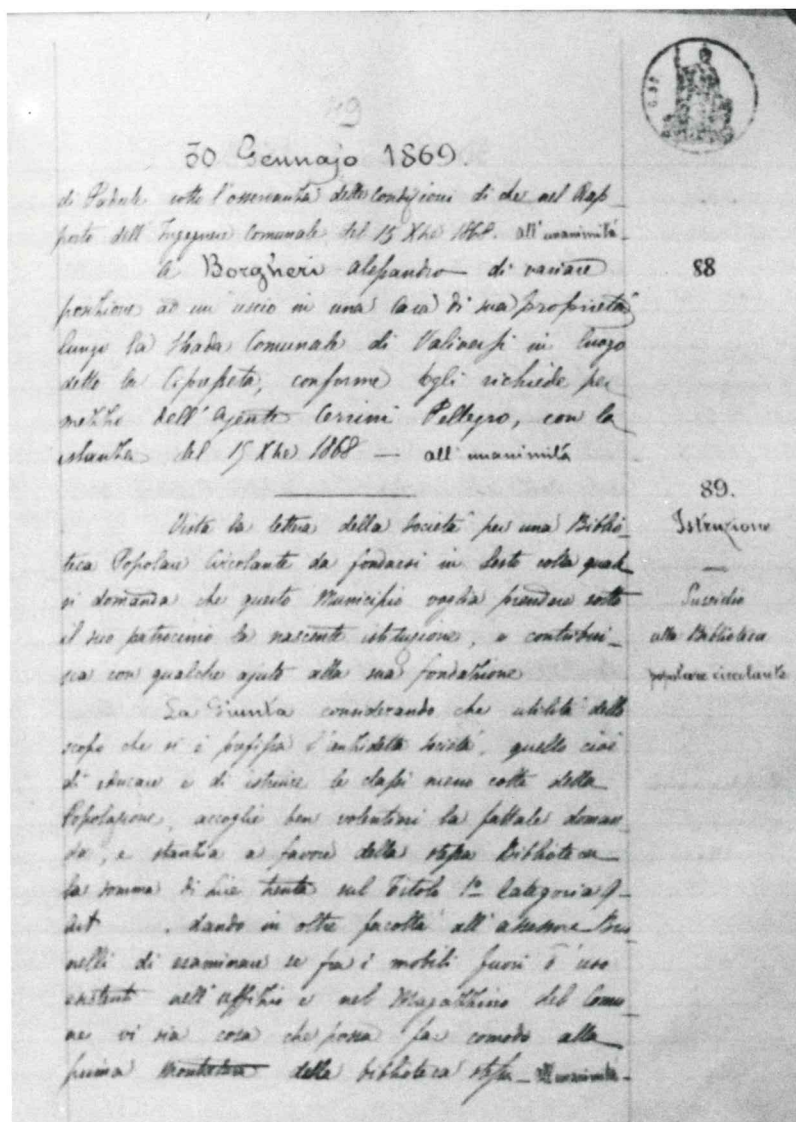 49
30 Gennajo 1869.
di Padule sotto l'osservanza delle condizioni di che nel Rap-
porto dell'Ingegnere Comunale del 15 Xbre 1868. all'unanimità.
A Borgheri Alessandro di variare
posizione ad un uscio in una Casa di sua proprietà
lungo la strada Comunale di Valiversi in luogo
detto la Cipresseta, conforme egli richiede per
mezzo dell'Agente Cerrini Pellegro, con la
istanza del 15 Xbre 1868 — all'unanimità
88
Vista la lettera della Società per una Biblio-
teca Popolare Circolante da fondarsi in Sesto colla quale
si domanda che questo Municipio voglia prendere sotto
il suo patrocinio la nascente istituzione, e contribui-
sca con qualche ajuto alla sua fondazione
89.
Istruzione
—
Sussidio
alla Biblioteca
popolare circolante
La Giunta considerando che utilità dello
scopo che si è prefissa l'anzidetta società, quello cioè
di educare e di istruire le classi meno colte della
Popolazione, accoglie ben volentieri la fattale doman-
da, e stanzia a favore della stessa Biblioteca
la somma di Lire trenta sul Titolo 1º Categoria 9
Art . dando in oltre facoltà all'Assessore Bru
nelli di esaminare se fra i mobili fuori d'uso
esistenti nell'Uffizio e nel Magazzino del Comu
ne vi sia cosa che possa far comodo alla
prima montatura della biblioteca stessa - all'unanimità -